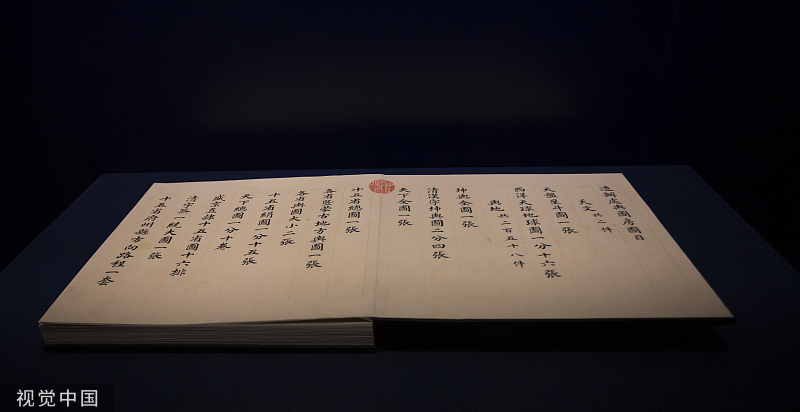 造辦處輿圖房圖目
天文共二件
天盤星斗圖一張
西洋天球地球圖一分十六張
輿地共二百五十八件
坤輿全圖一張
清漢字坤輿圖二分四張
天下全圖一張
十五省總圖一張
各省暨蒙古地方輿圖一張
各省輿圖大小二張
十五省絹圖一分十五張
天下總圖一分十卷
盛京直隸十五省圖十六排
清字一統大圖一張
十五省府州縣方向路程一套
视觉中国